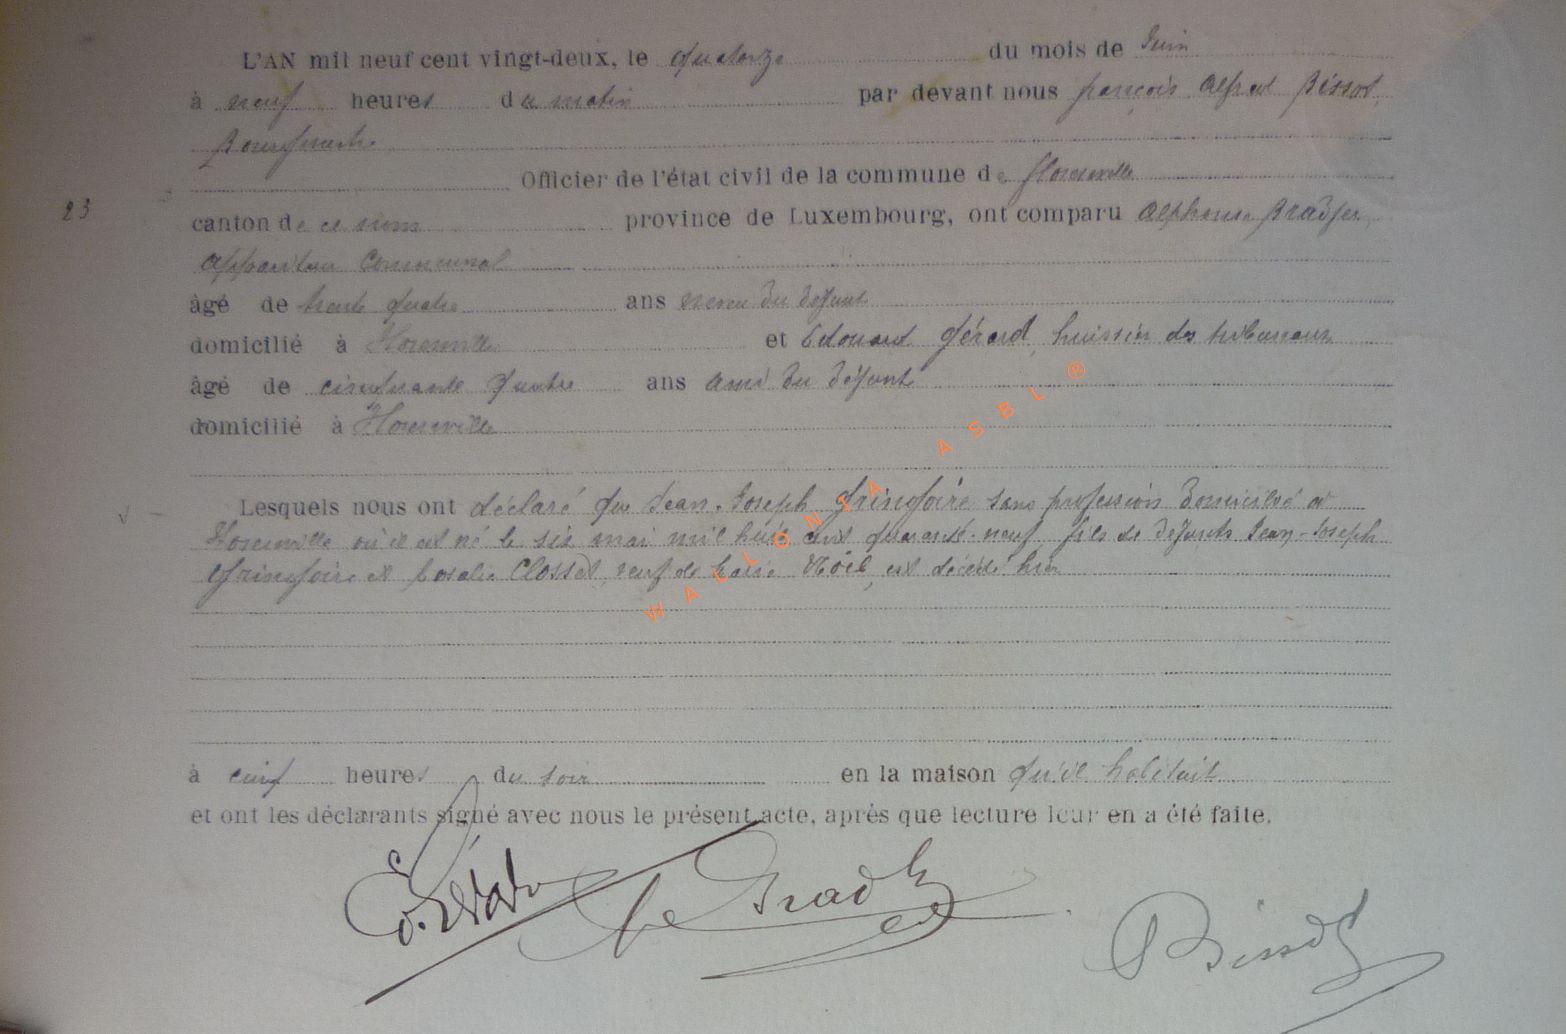 L'AN mil neuf cent vingt-deux, le quatorze du mois de Juin
à neuf heures du matin par devant nous françois Alfred Bissot,
Bourgmestre
Officier de l'état civil de la commune de florenville
23
canton de ce nom province de Luxembourg, ont comparu Alphonse Bradfer,
Appariteur Communal
âgé de trente quatre ans neveu du défunt
domicilié à Florenville et Edouard Gérard, huissier des tribunaux
âgé de cinquante quatre ans ami du défunt
domicilié à Florenville
Lesquels nous ont déclaré que Jean-Joseph Gringoire sans profession domicilié à
Florenville où il est né le six mai mil huit cent quarante-neuf, fils de défunts Jean-Joseph
Gringoire et Rosalie Closset, veuf de Marie Noël, est décédé hier
à cinq heures du soir en la maison qu'il habitait
et ont les déclarants signé avec nous le présent acte, après que lecture leur en a été faite.
Bissot
WALLONIA ASBL ®